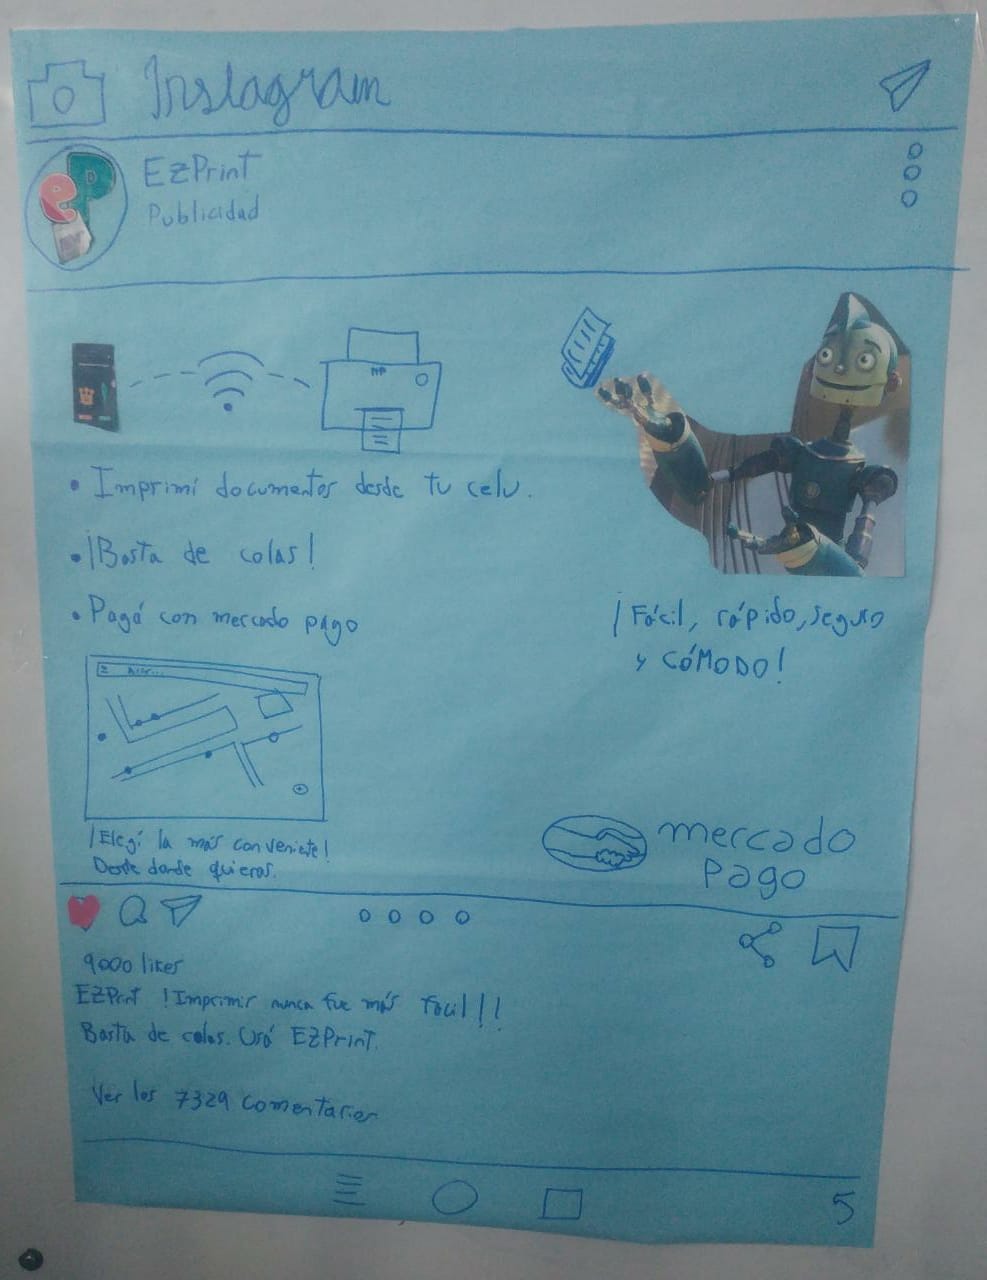 Instagram
EzPrint
Publicidad
eP
HP
• Imprimí documentos desde tu celu.
• ¡Basta de colas!
• Pagá con mercado pago
¡Fácil, rápido, seguro
y CÓMODO!
¡Elegí la más conveniete!
Desde donde quieras.
mercado
pago
9000 likes
EZPrint ¡Imprimir nunca fue más Facil!!
Basta de colas. Usá EZPrint.
Ver los 7329 comentarios
5